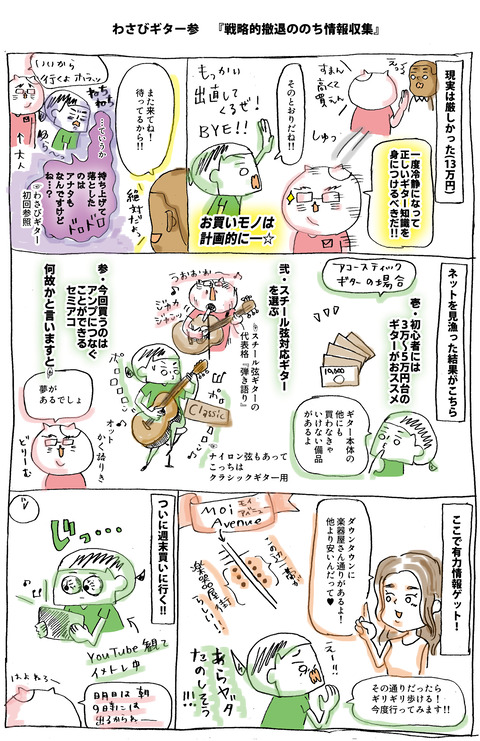 わさびギター参 『戦略的撤退ののち情報収集』
現実は厳しかった(13万円)
えっっ
すまん
高くて
買えん
しゅっ
一度冷静になって
正しいギター知識を
身につけるべきだ!!
そのとおりだね!!
もっかい
出直して
くるぜ!
BYE!!
お買いモノは
計画的にー☆
また来てね!
待ってるから!!
絶対だよう
いいから
行くよホラッ
ねち
ねち
…ていうか
持ち上げて
落とした
のは
アナタも
なんですけど
ね…?
ドロドロ
大人
わさびギター
初回参照
ネットを見漁った結果がこちら
アコースティック
ギターの場合
壱・初心者には
3万〜5万円台の
ギターがおススメ
10,000
ギター本体の
他にも
買わなきゃ
いけない備品
があるよ
弐・スチール弦対応ギター
を選ぶ
つかおいれ
ジャカ
ジャカ
ジャンッ
スチール弦ギターの
代表格『弾き語り』
ポロロロ〜ン
Classic
ナイロン弦もあって
こっちは
クラシックギター用
参・今回買うのは
アンプにつなぐ
ことができる
セミアコ
何故かと言いますと
夢が
あるでしょ
オッド
かく語りき
どりーむ
ここで有力情報ゲット!
ダウンタウンに
楽器屋さん通りがあるよ!
他より安いんだって♥
Moi
Avenue
モイ
アベニュー
この辺一帯が
楽器屋街
らしい!
えー!!
あらヤダ
たのしそう
!!!
その通りだったら
ギリギリ歩ける!
今度行ってみます!!
ついに週末買いに行く!!
じっ…
YouTube観て
イメトレ中
はよねろー
明日は朝
9時には
出るからねー